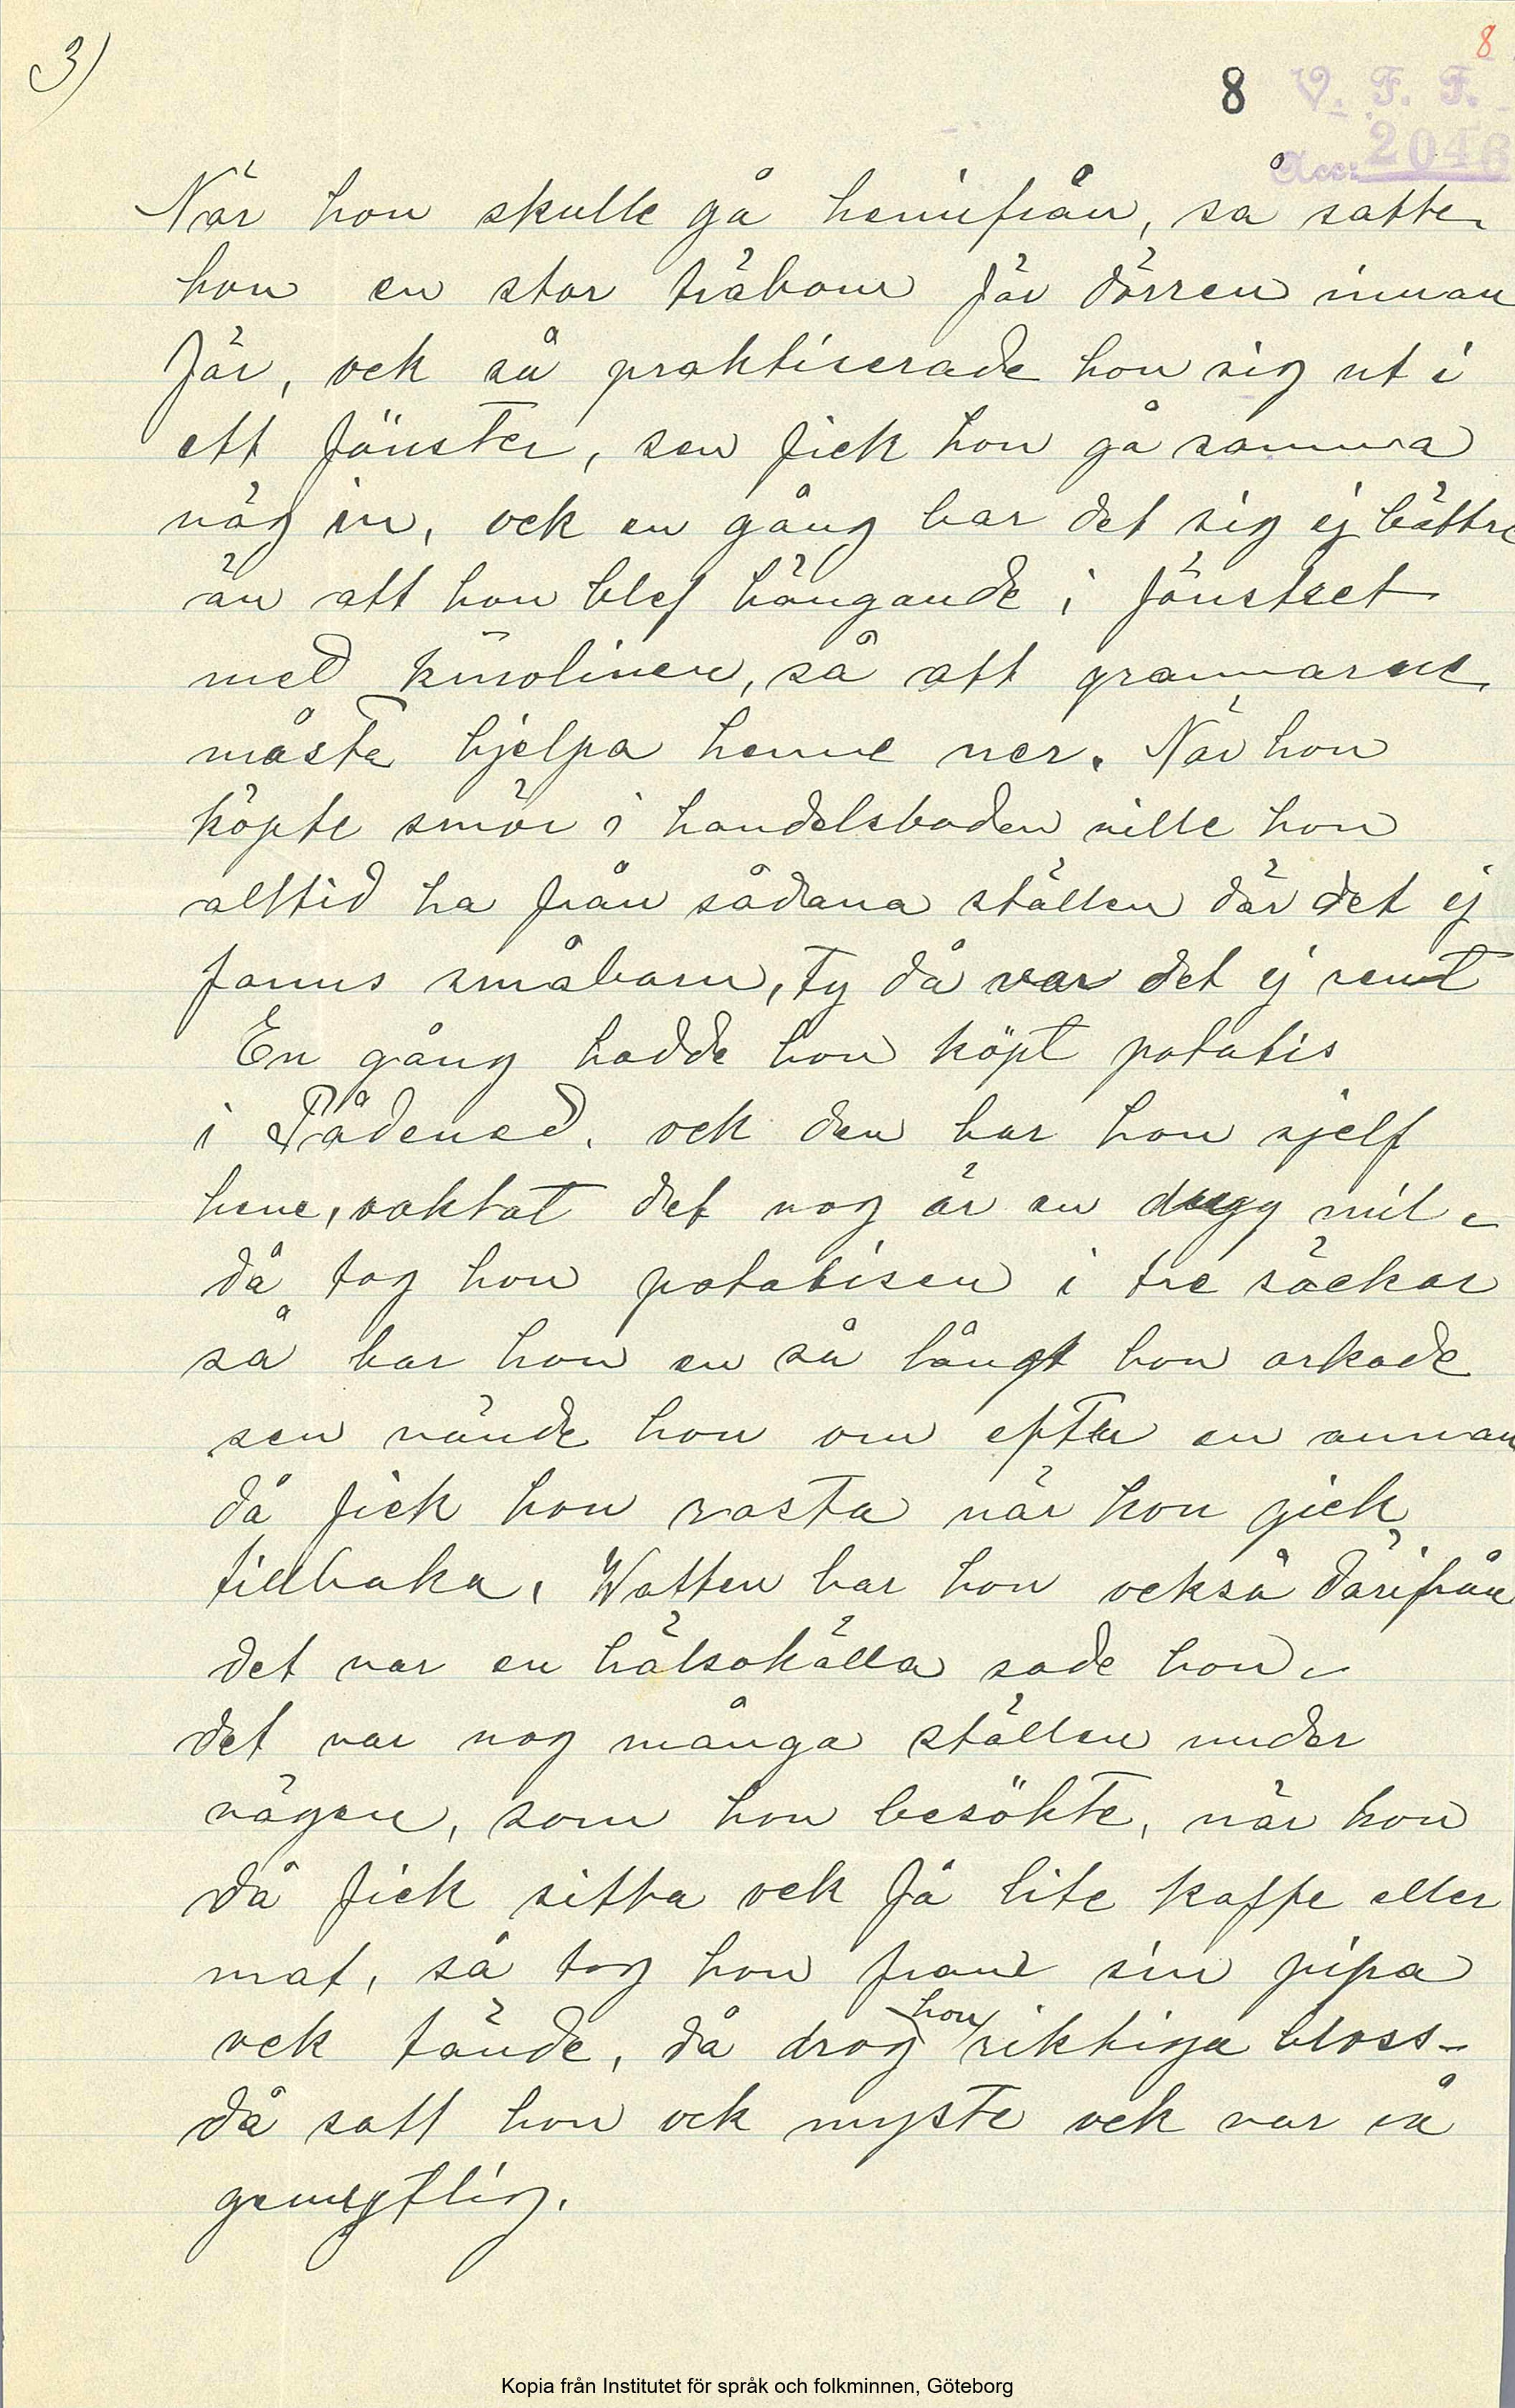 3)
8
8 V. F. F.
Acc: 2046
När hon skulle gå hemifrån, så satte
hon en stor träbom för dörren innan
för, ock så praktiserade hon sig ut i
ett fönster, sen fick hon gå samma
väg in, ock en gång bar det sig ej bättre
än att hon blef hängande i fönstret
med krinolinen, så att grannarne
måste hjelpa henne ner. När hon
köpte smör i handelsboden ville hon
alltid ha från sådana ställen där det ej
fanns småbarn, ty då var det ej rent
En gång hadde hon köpt potatis
i Pådened. ock den bar hon sjelf
hem, vaktat det nog är en dryg mil
då tog hon potatisen i tre säckar
så bar hon en så långt hon orkade
sen vände hon om efter en annan
då fick hon rasta när hon gick
tillbaka. Watten bar hon också därifrån
det var en hälsokälla sade hon
det var nog många ställen under
vägen, som hon besökte, när hon
då fick sitta ock få lite kaffe eller
mat, så tog hon fram sin pipa
ock tände, då drog hon riktiga bloss
då satt hon ock myste ock var så
gemytlig.
Kopia från Institutet för språk och folkminnen, Göteborg